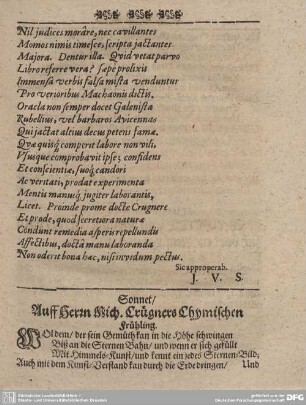 Nil judices morâre, nec cavillantes
Momos nimis timesce, scripta jactantes
Majora. Dentur illa. Qvid vetat parvo
Libro referre vera? sæpè prolixis
Immensa verbis falsa mista venduntur
Pro verioribus Machaonis dictis,
Oracla non semper docet Galenista
Rubellius, vel barbaros Avicennas
Qui jactat altius decus petens famæ.
Qva quisq́; comperit labore non vili,
Vsuque comprobavit ipse; confidens
Et conscientiæ, suoq́; candori
Ac veritati, prodat experimenta
Mentis manusq́; jugiter laborantis,
Licet. Proinde prome docte Crugnere
Et prode, quod secretiora naturæ
Condunt remedia asperis repellundis
Affectibus, doctâ manu laboranda
Non oderit bona hac, nisi invidum pectus.
Sic approperab.
J. V. S.
Sonnet/
Auff Herrn Mich. Crügners Chymischen
Frühling.
WOl dem/ der sein Gemüth kan in die Höhe schwingen
Biß an die Sternen Bahn/ und wenn er sich gefüllt
Mit Himmels-Kunst/ und kennt ein jedes Sternen-Bild;
Auch mit dem Kunst-Verstand kan durch die Erde dringen/
Und